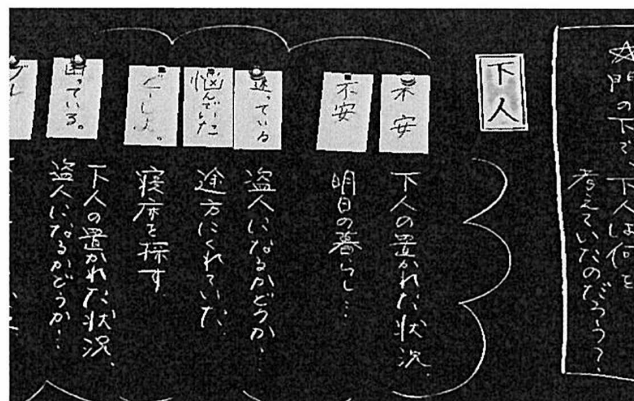 ☆門の下で、下人は何を
考えていたのだろう？
下人
不安
下人の置かれた状況
不安
明日の暮らし…
迷っている
盗人になるかどうか…
悩んでいた
途方にくれていた
寝床を探す
困っている。
下人の置かれた状況
盗人になるかどうか…